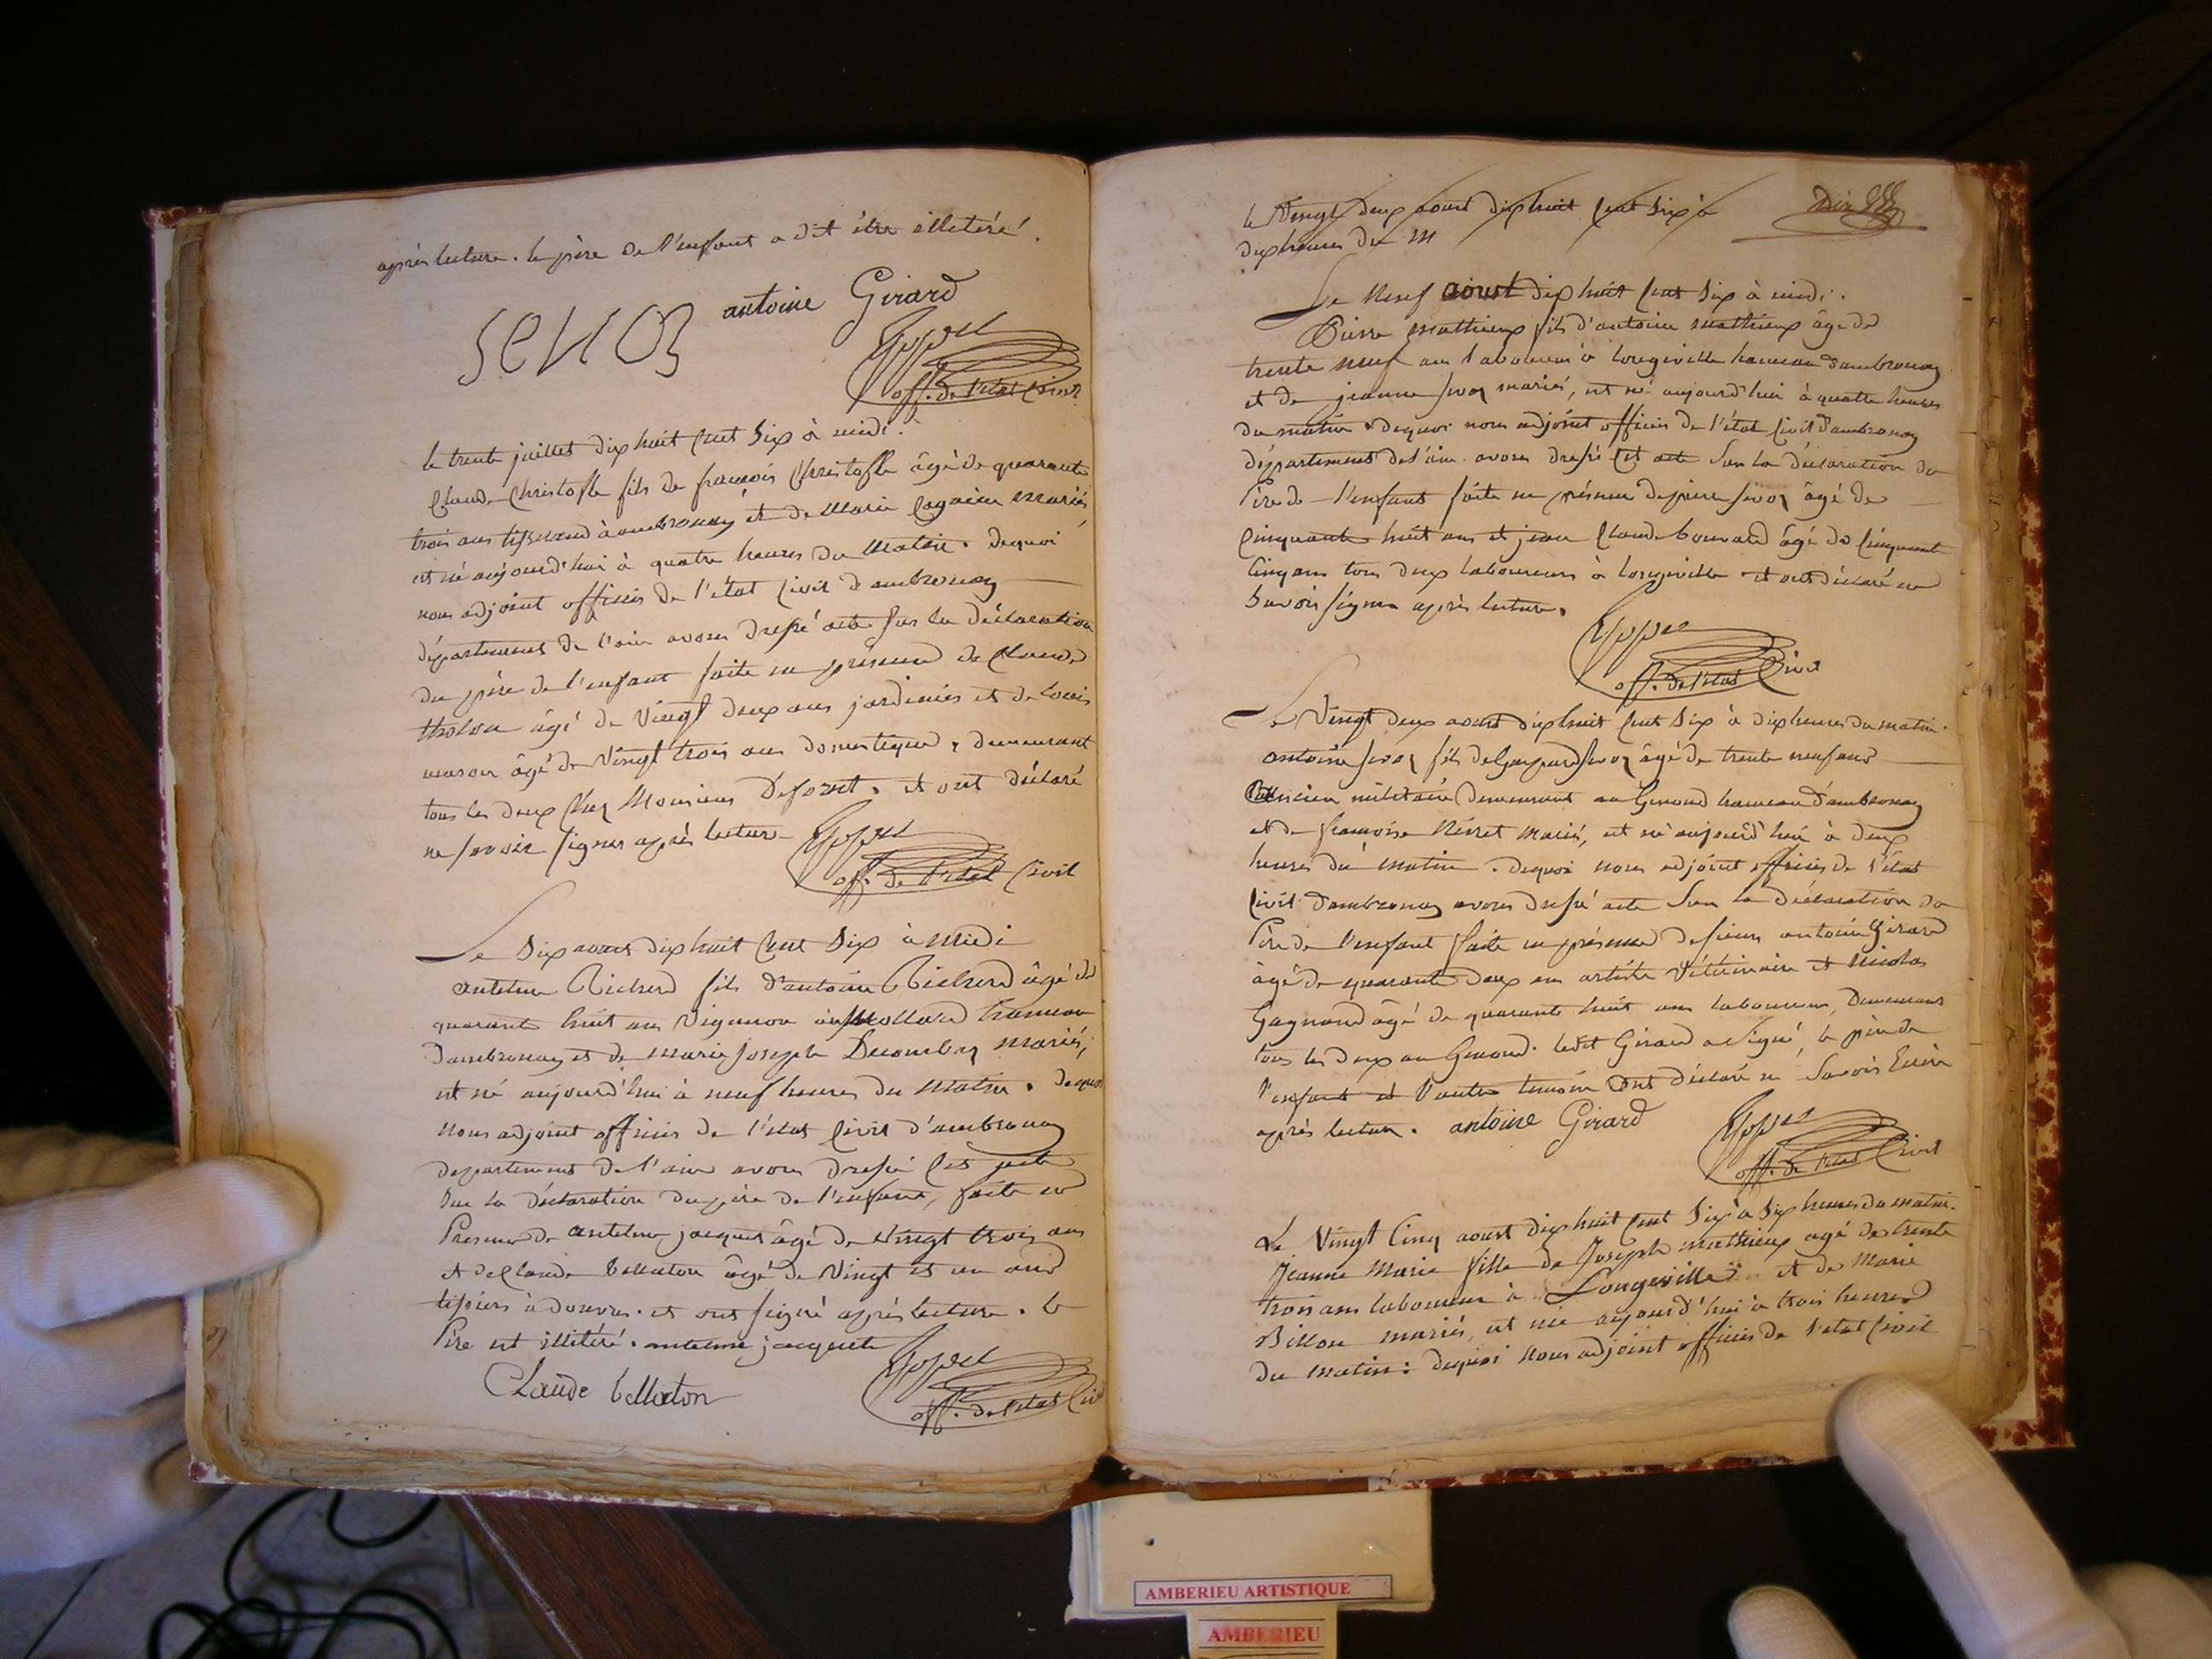 après lecture. le père de l'enfant a dit être illetéré.
antoine Girard
off. de l'état Civil
le trente juillet dix huit Cent Six à midi.
Claude Christofle fils de françois Christofle âgé de quarante
trois ans tisserand à ambronay et de Marie mariés,
est né aujourd'hui à quatre heures du Matin. dequoi
nous adjoint officier de l'état Civil d'ambronay
département de l'ain avons dressé acte sur la déclaration
du père de l'enfant faite en présence de Claude
tholon âgé de Vingt deux ans jardinier et de Louis
âgé de Vingt trois ans domestique, demeurant
tous les deux Chez Monsieur . et ont déclaré
ne savoir signer après lecture
off. de l'état Civil
Le Six aoust dix huit Cent Six à Midi
antelme Richerd fils d'antoine Richerd âgé de
quarante huit ans Vigneron au Mollard hameau
dambronay et de marie Joseph mariés,
est né aujourd'hui à neuf heures du Matin. dequoi
nous adjoint officier de l'état Civil d'ambronay
departement de l'ain avons dressé Cet acte
Sur la déclaration du père de l'enfant, faite en
Présence de antelme jacquet âgé de Vingt trois ans
et de Claude bellaton âgé de Vingt et un ans
à douvres. et ont signé après lecture. le
Père est illitéré. antelme jacquet
Claude bellaton
off. de l'état Civil
le Vingt deux aoust dix huit Cent Six à
dix heures du M
Le Neuf aoust dix huit Cent Six à midi.
Pierre mathieux fils d'antoine mathieux âgé de
trente neuf ans laboureur à longeville hameau dambronay
et de jeanne mariés, est né aujourd'hui à quatre heures
du matin. dequoi nous adjoint officier de l'état Civil d'ambronay
département de l'ain avons dressé Cet acte Sur la déclaration du
Père de l'enfant faite en présence de pierre âgé de
Cinquante huit ans et jean Claude bouvard âgé de Cinquante
Cinq ans tous deux laboureurs à longeville et ont déclaré ne
Savoir signer après lecture.
off. de l'état Civil
Le Vingt deux aoust dix huit Cent Six à dix heures du matin.
antoine fils de Gaspard âgé de trente neuf ans
ancien militaire demeurant au Genoud hameau d'ambronay
et de françoise mariés, est né aujourd'hui à deux
heures du matin. dequoi nous adjoint officier de l'état
Civil dambronay avons dressé acte Sur la déclaration du
Père de l'enfant faite en présence de sieur antoine Girard
âgé de quarante deux ans artiste Vétérinaire et Nicolas
Gagnard âgé de quarante huit ans laboureur, Demeurant
tous les deux au Genoud. ledit Girard a Signé, le père de
l'enfant et l'autre témoin ont déclaré ne Savoir Ecrire
après lecture. antoine Girard
off. de l'état Civil
Le Vingt Cinq aoust dix huit Cent Six à Six heures du matin.
Jeanne Marie fille de Joseph mathieux agé de trente
trois ans laboureur à Longeville et de Marie
Billon mariés, est née aujourd'hui à trois heures
du matin: dequoi nous adjoint officier de l'état Civil
AMBERIEU ARTISTIQUE
AMBERIEU